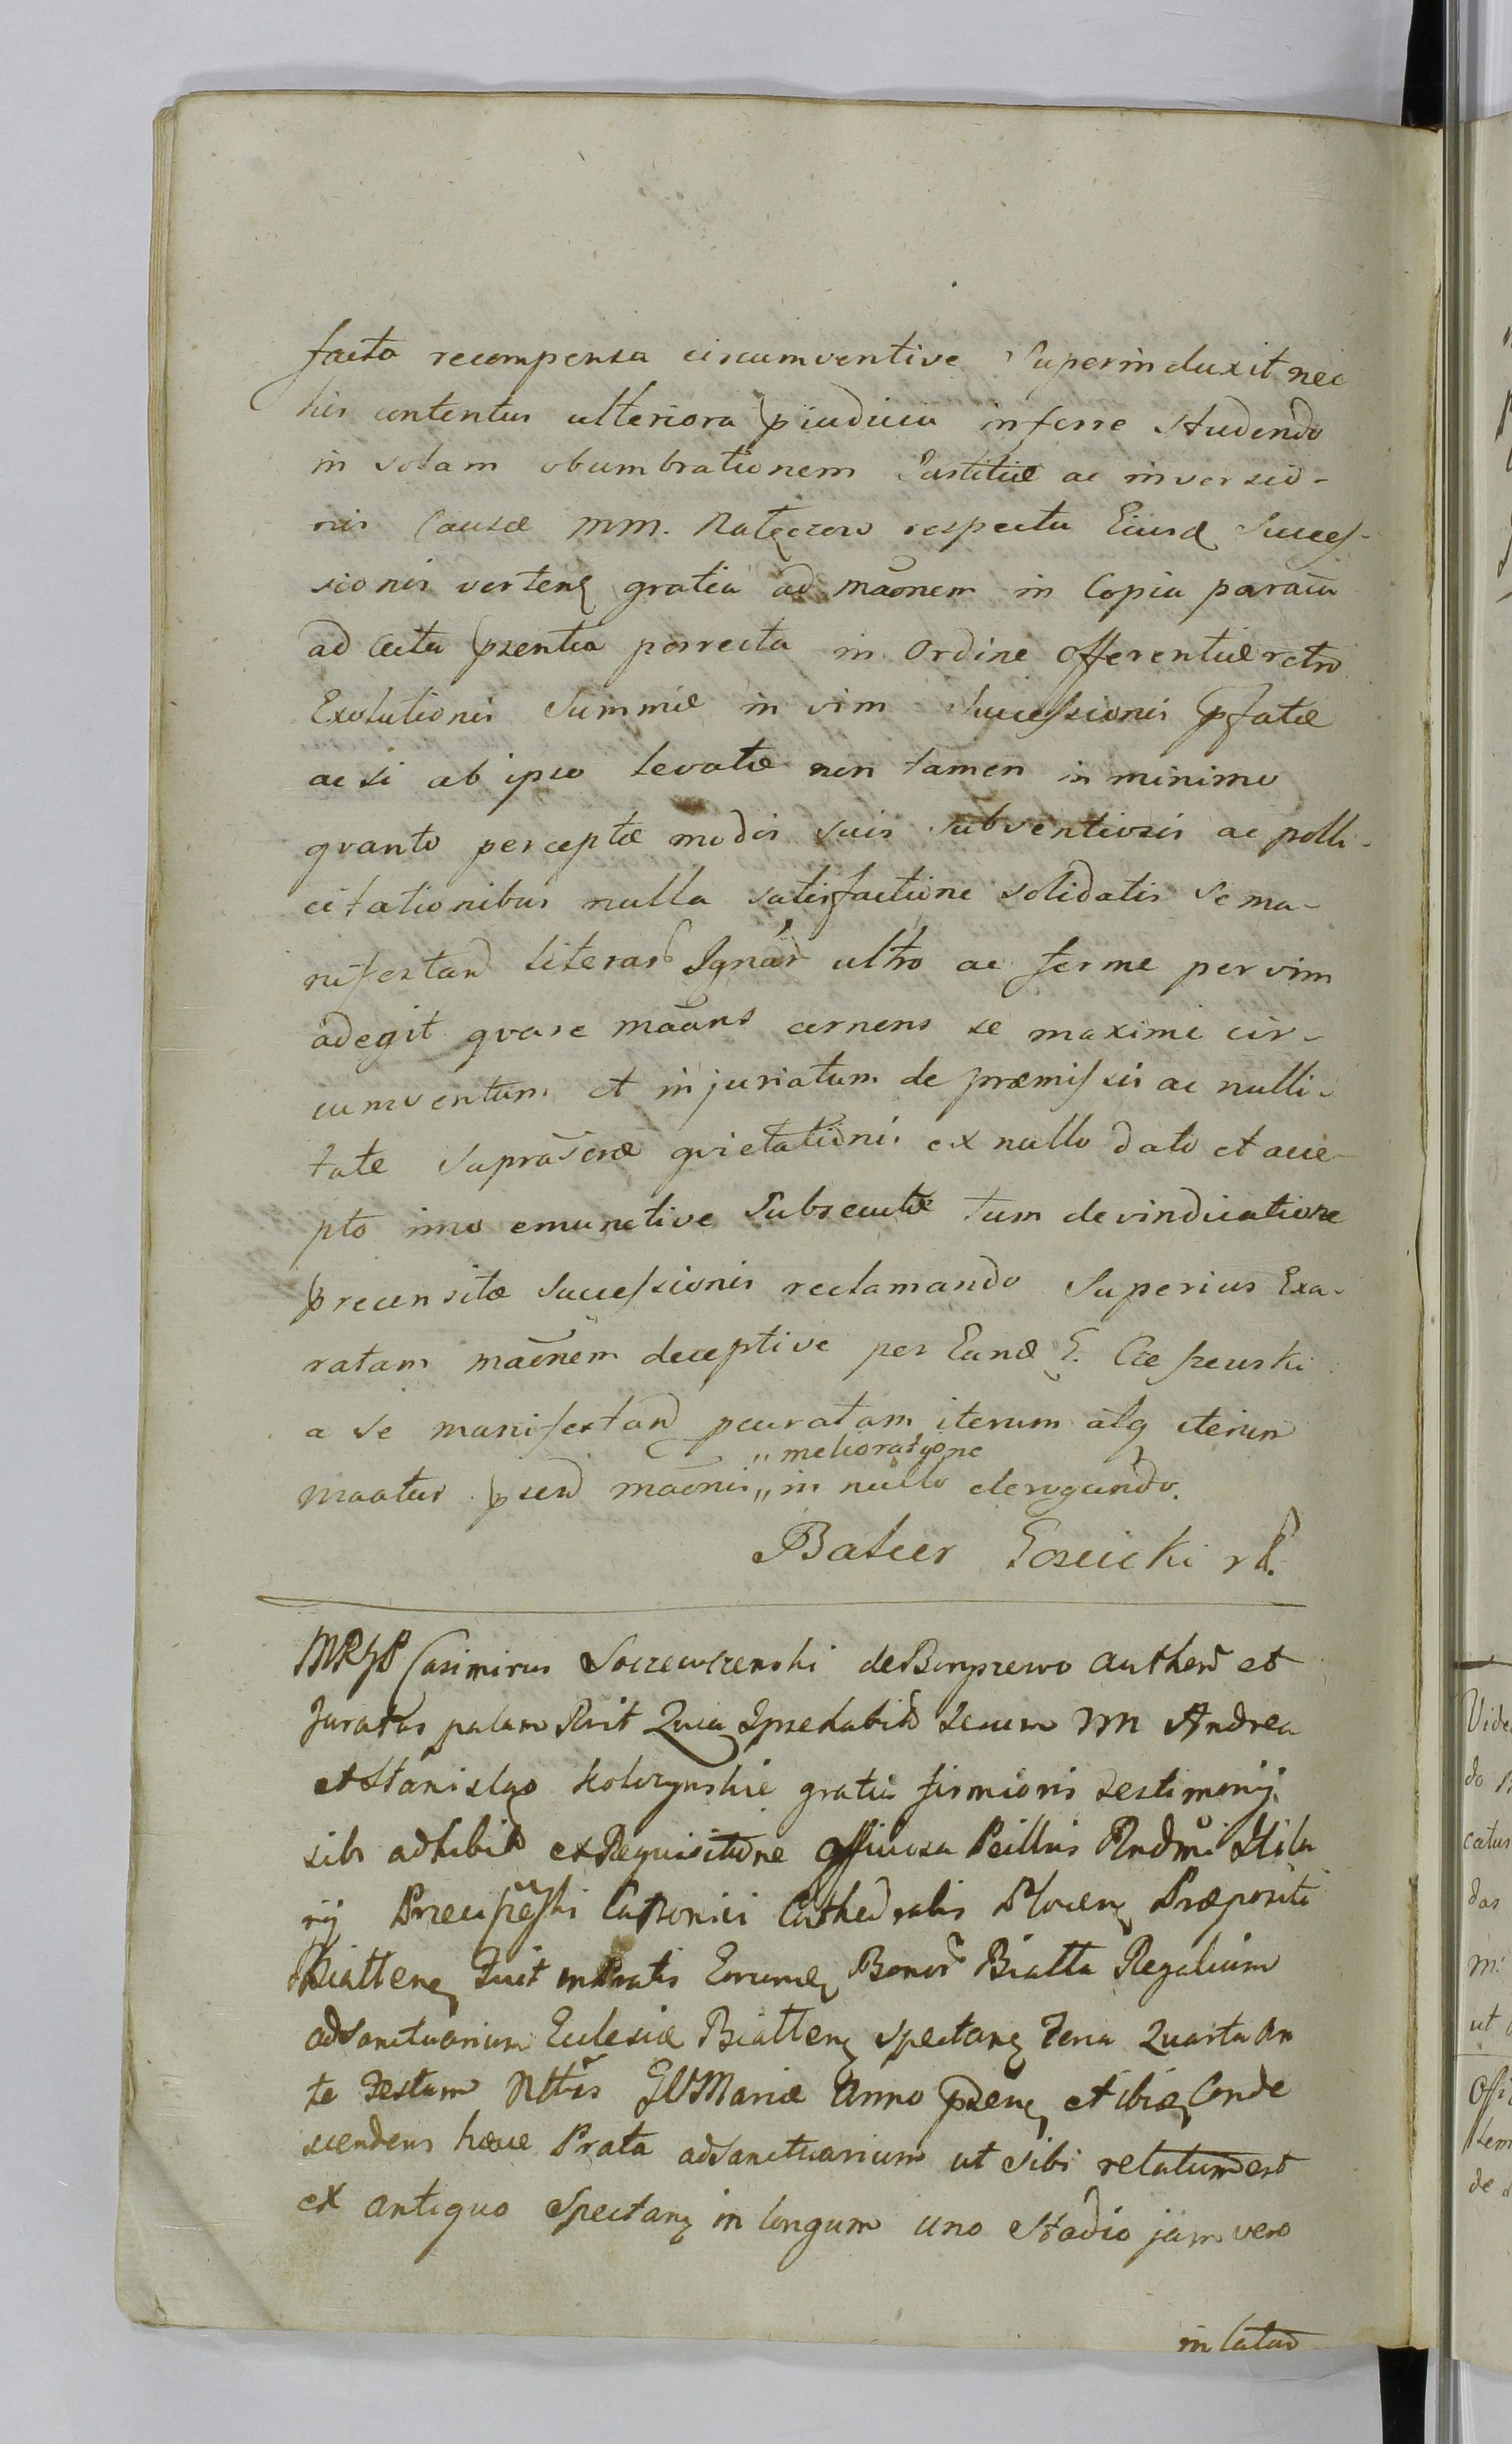 facta recompensa circumventive Superinduxit nec
his contentus ulteriora pjudicia inferre studendo
in solam obumbrationem Justitiæ ac inversio-
nis Causæ MM. Natęczow respectu Eiusd Succes-
sionis verten gratia ad mãonem in Copia paratã
ad Acta pzentia porrecta in Ordine Offerentiæ retro
Exolutionis Summæ in vim Successionis pfatæ
ac si ab ipso levatæ non tamen in minimo
quanto perceptæ modis suis subventiosis ac polli-
citationibus nulla satisfactione solidatis se ma-
nifestand literar Ignar ultro ac ferme per vim
adegit quare mãans cernens se maxime cir-
cumventum et injuriatum de præmissis ac nulli-
tate suprascræ quietationis ex nullo dato et acce-
pto imo emunctive subsecutæ tum de vindicatione
precensitæ Successionis reclamando Superius Exa-
ratam mãonem deceptive per Eund G.
a se manifestand pcuratam iterum atq iterum
maatur psen mãonis „ in nullo derogando.
„ melioratione
Balcer Goscicki
MRGP Casimirus de authen et
Juratus palam Rcit Quia Ipse habit Secum NN Andrea
et Stanislao gratia firmioris testimonij
sibi adhibit ex Requisitione officiosa Peillris Rndmi Hila
rij Canonici Cathedralis Plocen Præpositi
Biatten Fuit in Pratis Eorund Bonor Biatta Regalium
ad Sanctuarium Ecclesiæ Biatten spectan Feria Quarta an
te Festum Nttis BVMariæ Anno pzen et ibid Conde
scendens hæce Prata ad Sanctuarium ut sibi relatum est
ex antiquo Spectan in longum uno Stadio jam vero
in latum